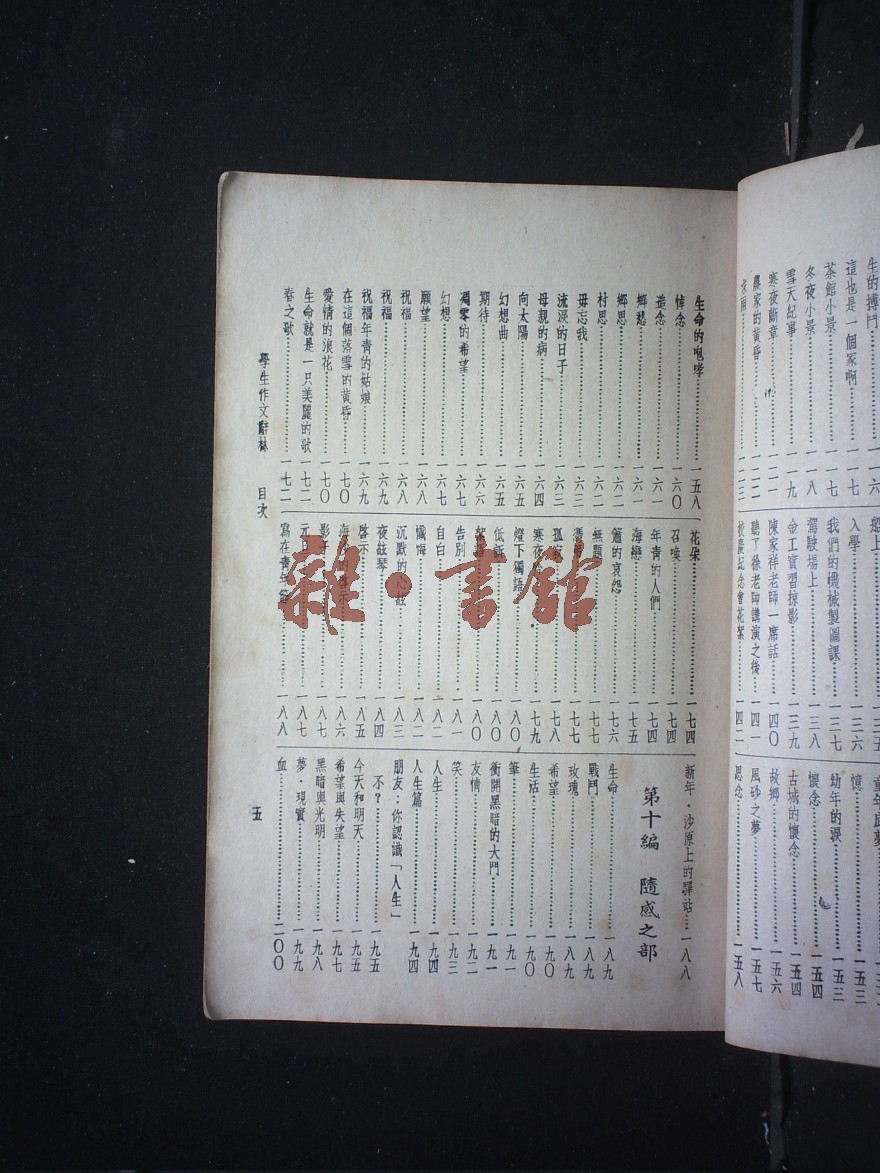 生的搏鬥…一一六
這也是一個家啊…一一七
茶館小景…一一七
冬夜小景…一一八
雪天紀事…一一九
寒夜斷章…一二一
農家的黃昏…一二二
船上…一三五
入學…一三六
我們的機械製圖課…一三七
駕駛場上…一三八
金工實習掠影…一三九
陳家祥老師一席話…一四〇
聽了徐老師講演之後…一四一
校慶紀念會花絮…一四二
憶…一五三
幼年的淚…一五三
懷念…一五四
古城的懷念…一五四
故鄉…一五六
風砂之夢…一五七
思念…一五八
生命的咆哮…一五八
悼念…一六〇
遙念…一六一
鄉愁…一六一
鄉思…一六二
村思…一六二
毋忘我…一六三
流淚的日子…一六三
母親的病…一六四
向太陽…一六五
幻想曲…一六五
期待…一六六
凋零的希望…一六七
幻想…一六七
願望…一六八
祝福…一六八
祝福…一六九
祝福年青的姑娘…一六九
在這個落雪的黃昏…一七〇
愛情的浪花…一七〇
生命就是一只美麗的歌…一七二
春之歌…一七二
花朵…一七四
召喚…一七四
年青的人們…一七四
海戀…一七五
簫的哀怨…一七六
無題…一七七
一七七
孤寂…一七八
寒夜…一七九
燈下獨語…一八〇
低訴…一八〇
一八〇
告別…一八一
自白…一八二
懺悔…一八二
沉默的心…一八三
夜鼓琴…一八四
啓示…一八五
海…一八六
影子…一八七
元旦…一八七
寫在青年節…一八八
新年・沙原上的驛站…一八八
第十編　隨感之部
生命…一八九
戰鬥…一八九
玫瑰…一八九
希望…一九〇
生活…一九〇
筆…一九一
衝開黑暗的大門…一九一
友情…一九二
笑…一九三
人生…一九四
人生篇…一九四
朋友：你認識「人生」
不？…一九五
今天和明天…一九五
希望與失望…一九七
黑暗與光明…一九八
夢・現實…一九九
血…二〇〇
學生作文辭林　目次
五
雜・書館